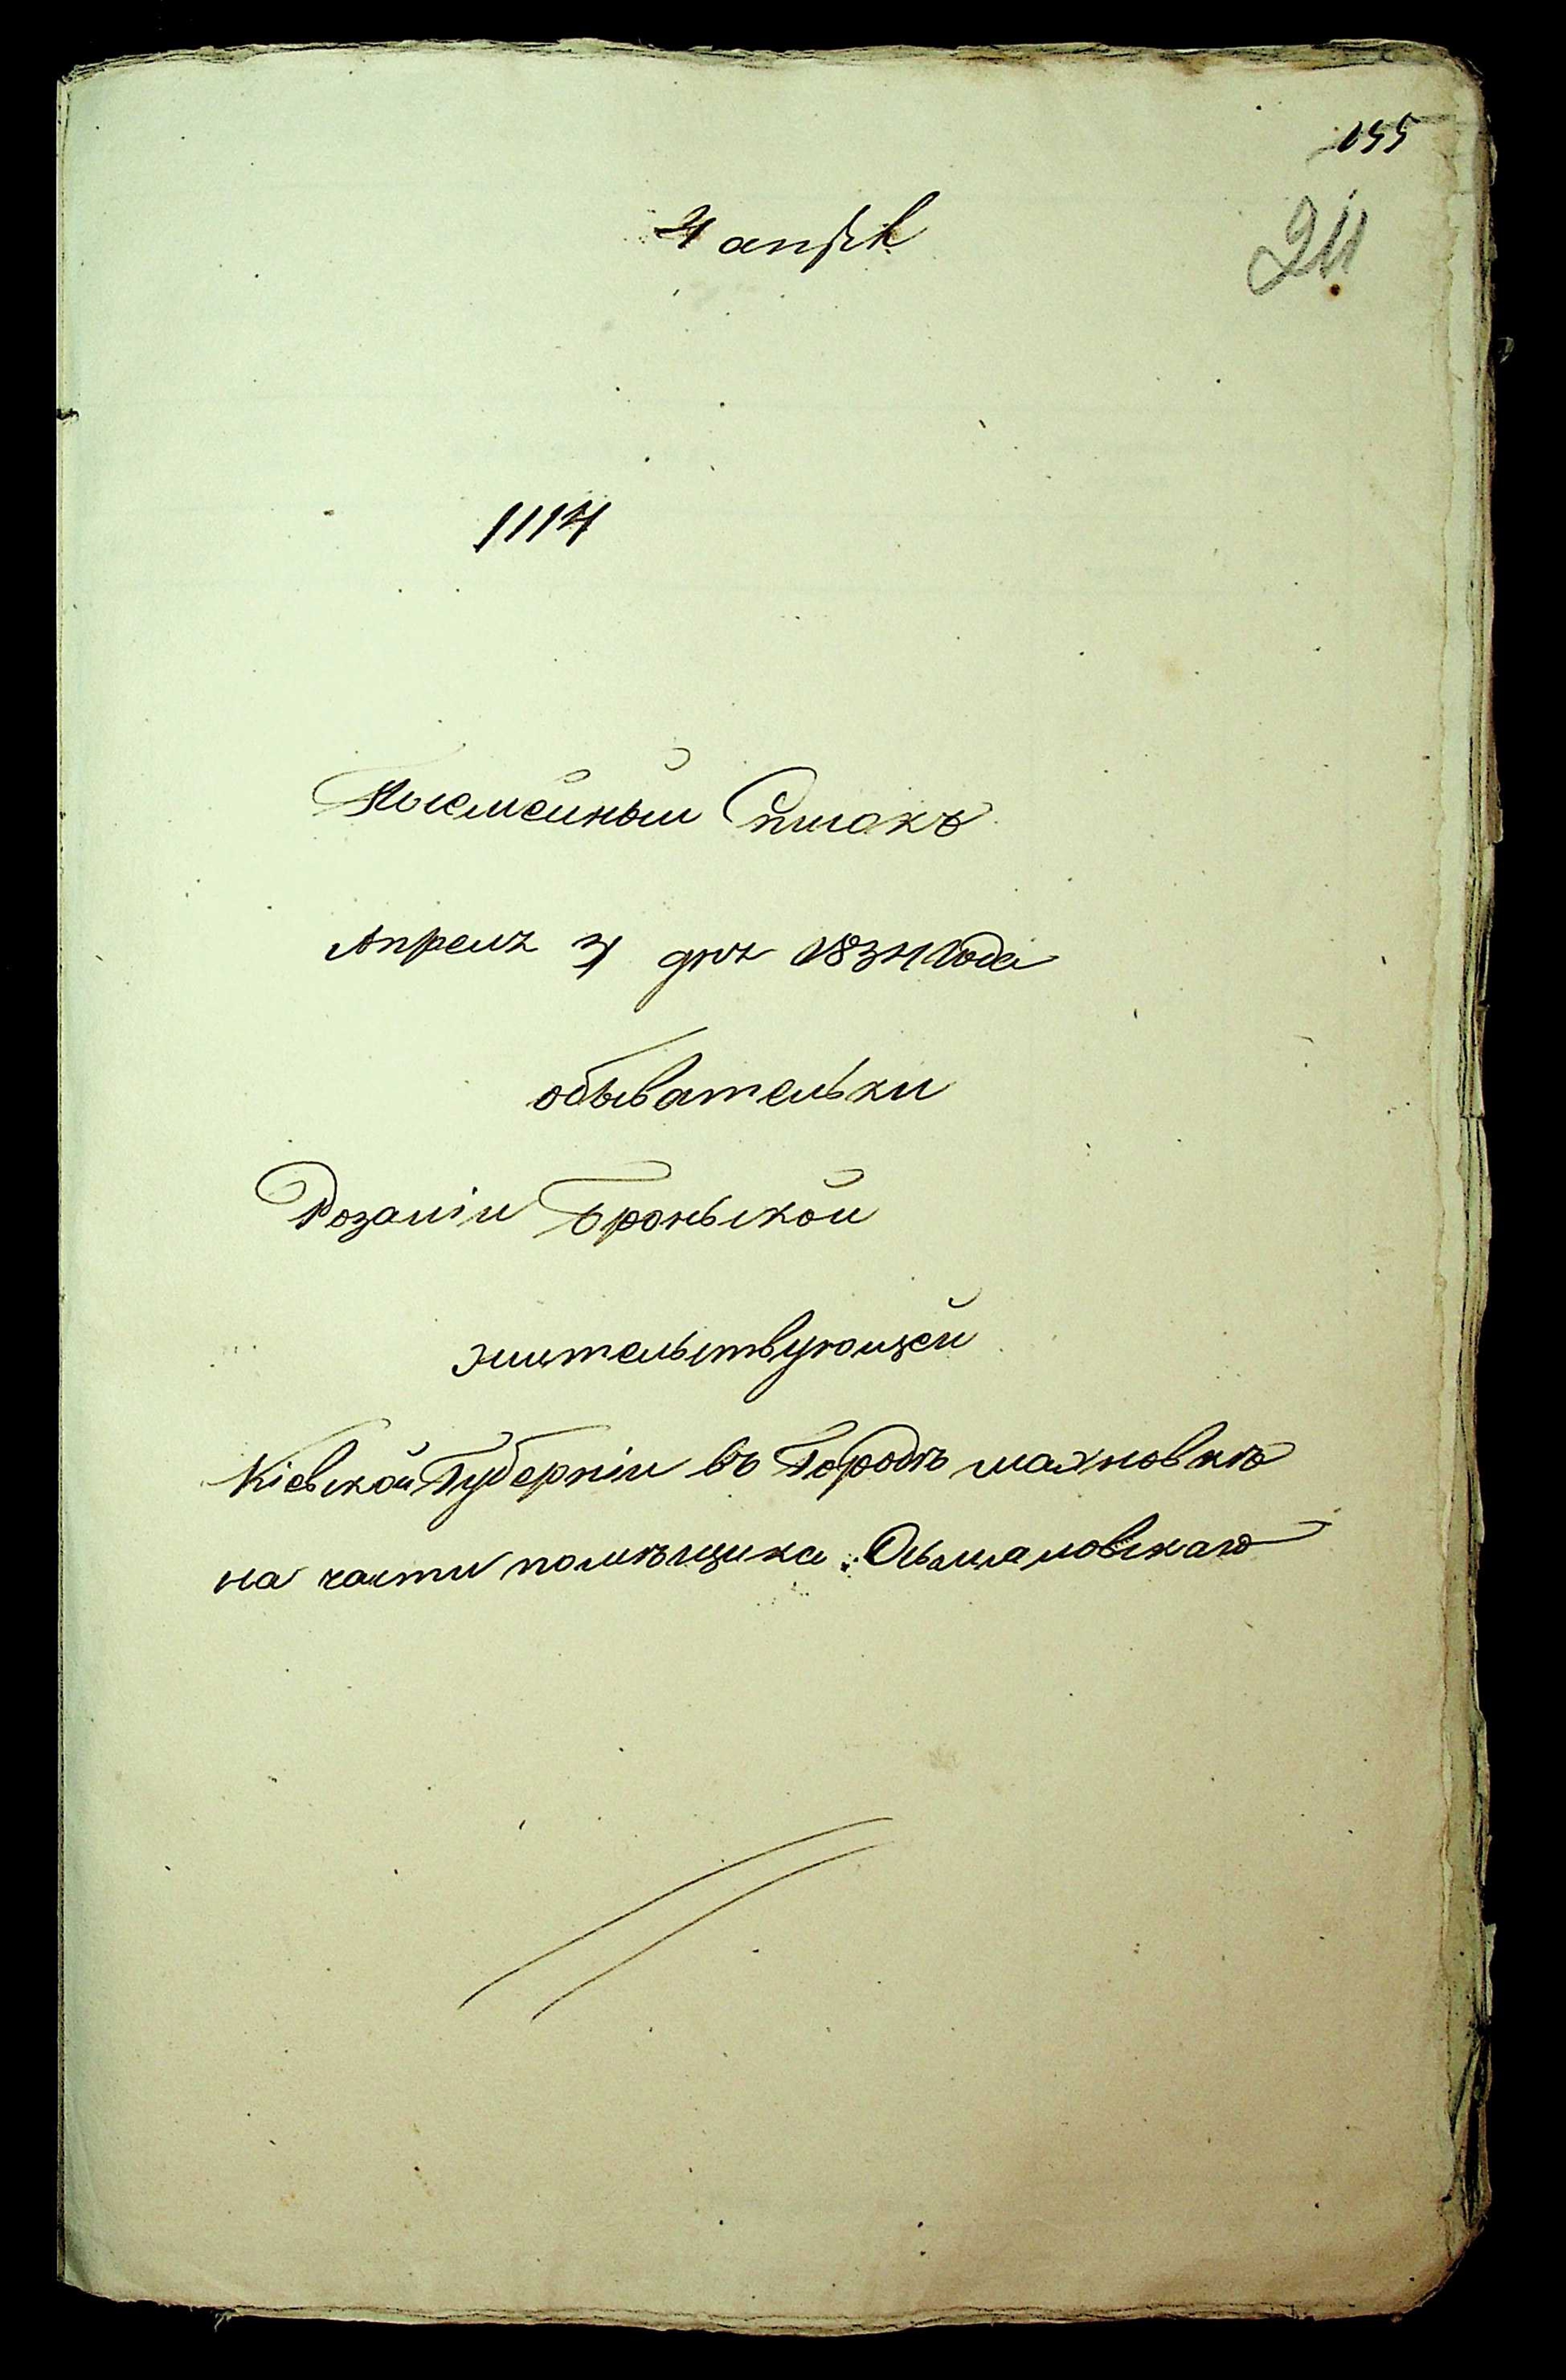 155
4 апрѣл
211
1114
Посемейный Списокъ
Апреля 4 дня 1834 Года
обывательки
Розаліи Броньской
жительствующей
Кіевской Губерніи въ Городѣ Махновкѣ
на части помѣщика